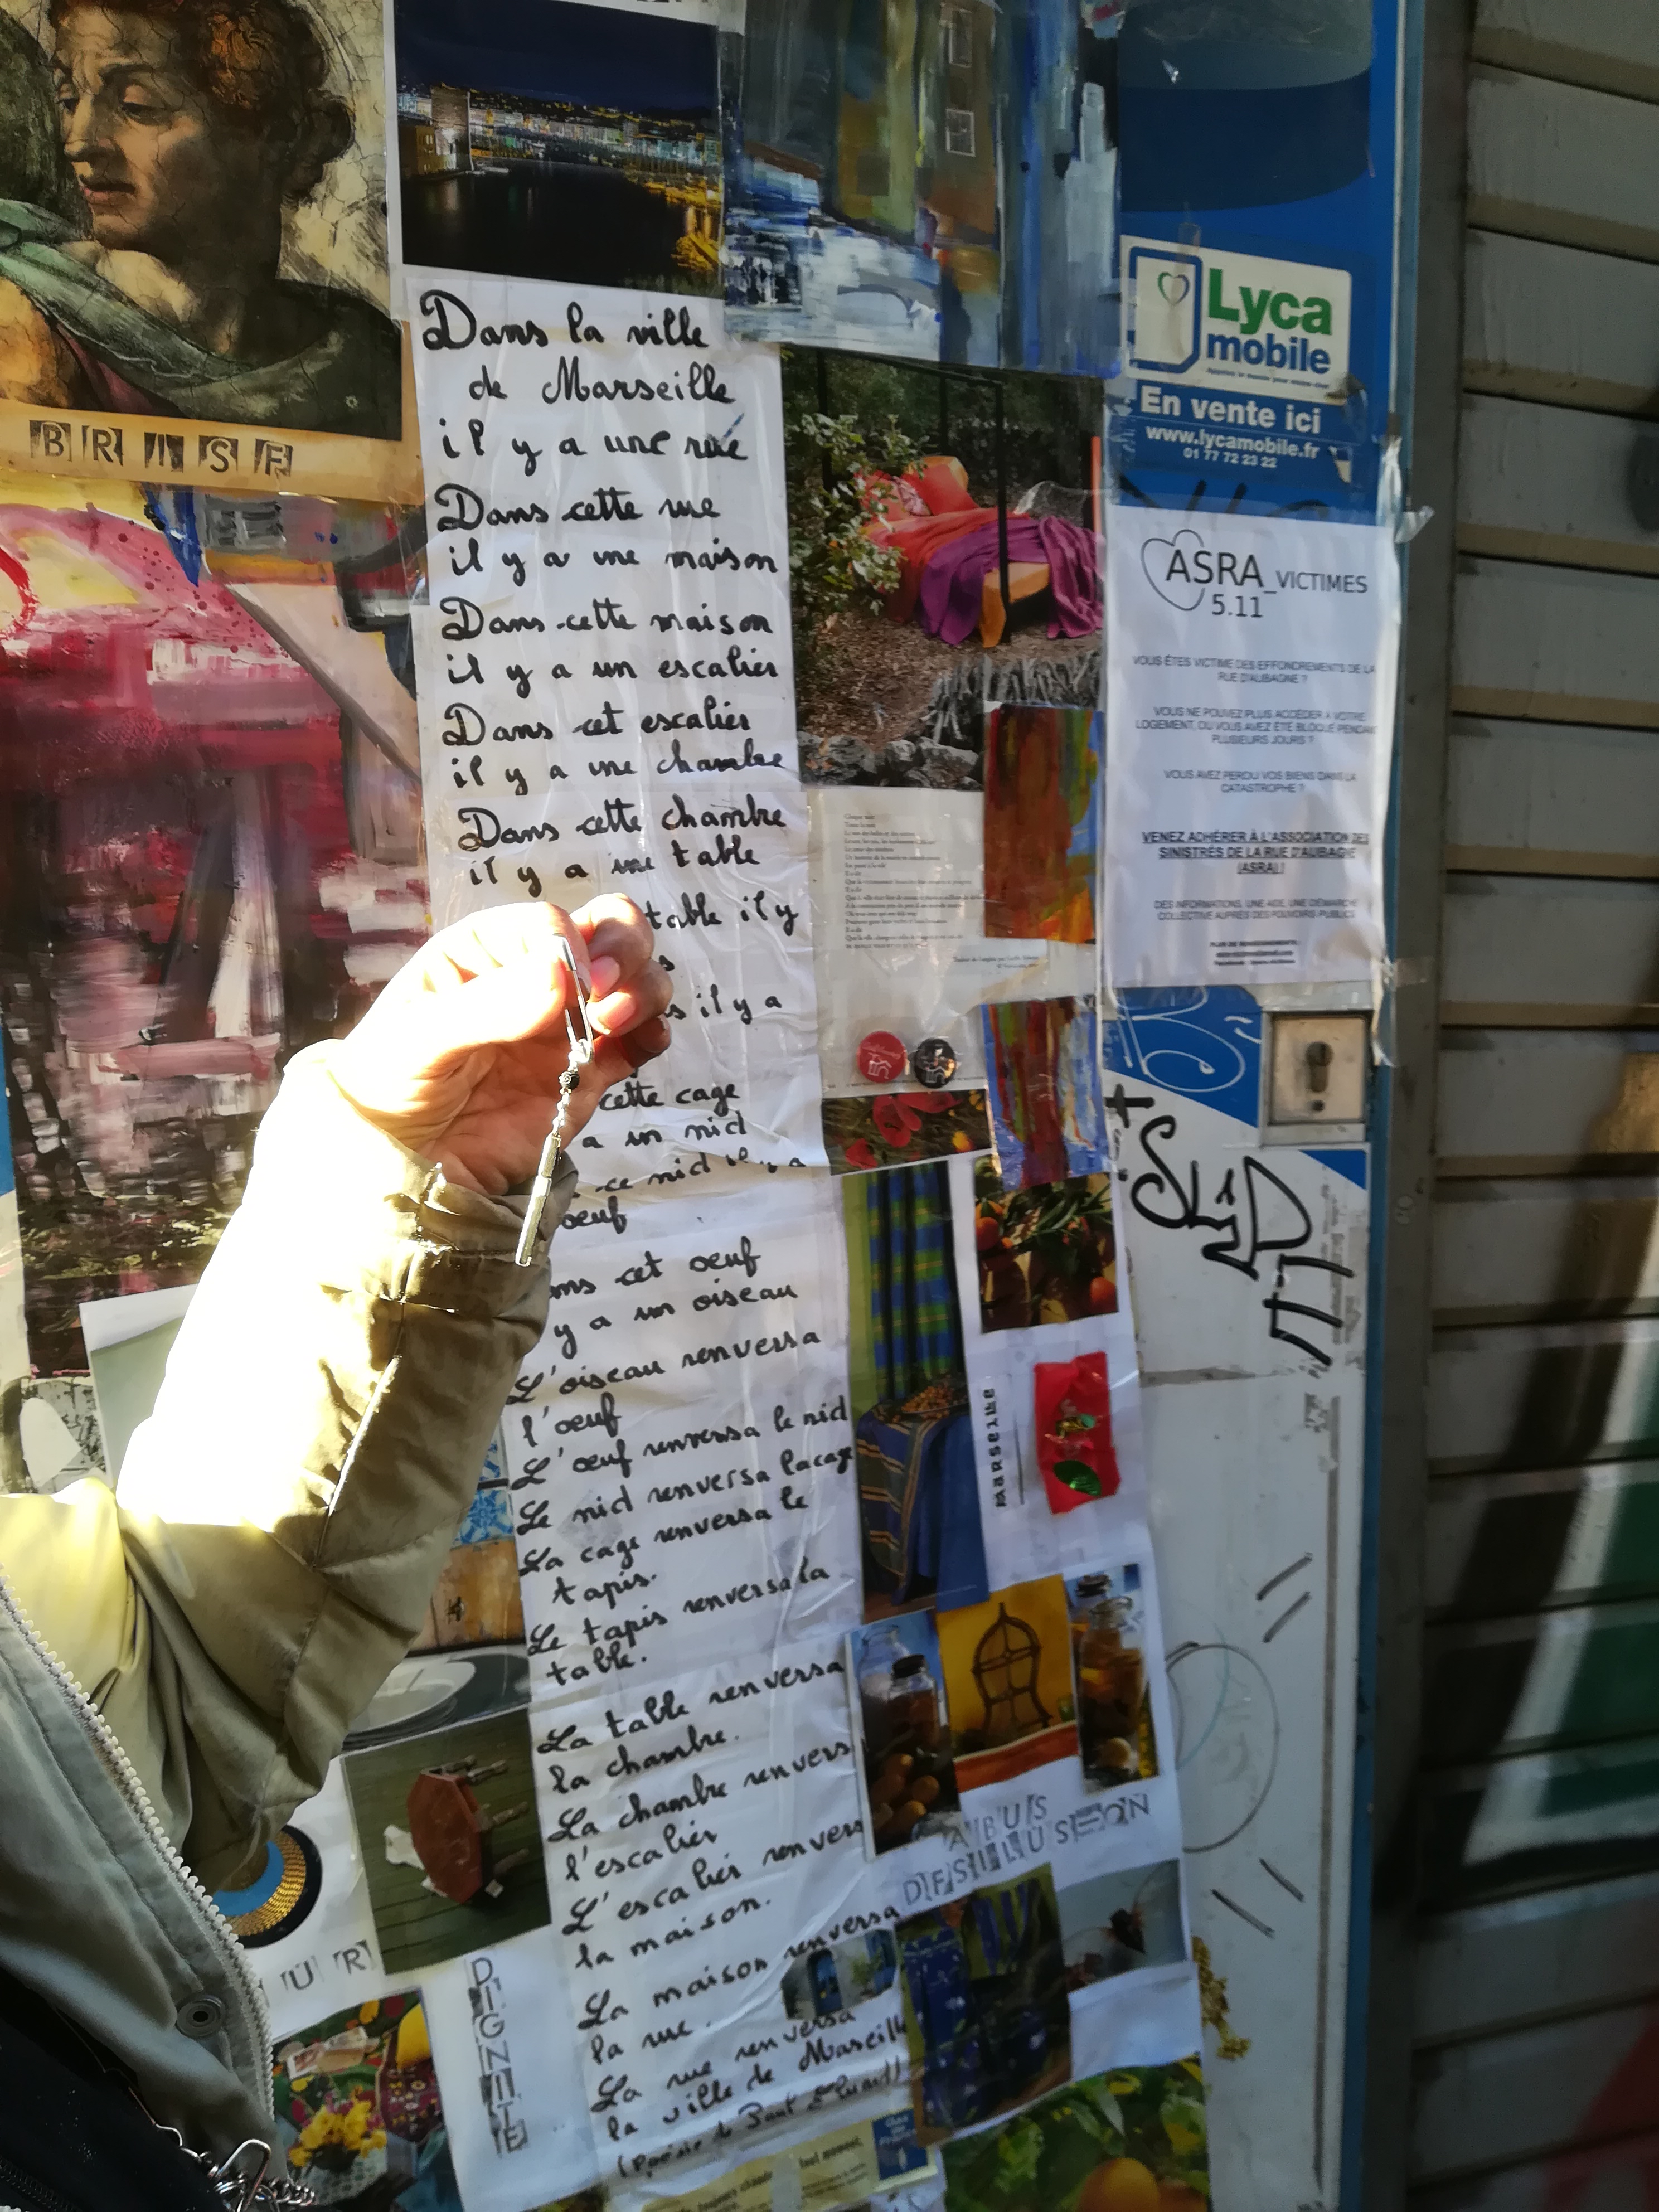 BRISE
Dans la ville
de Marseille
il y a une rue
Dans cette rue
il y a une maison
Dans cette maison
il y a un escalier
Dans cet escalier
il y a une chambre
Dans cette chambre
il y a une table
table il y
s il y a
cette cage
a un nid
ce nid il y a
oeuf
cet oeuf
y a un oiseau
L'oiseau renversa
l'oeuf
L'oeuf renversa le nid
Le nid renversa la cage
La cage renversa le
tapis.
Le tapis renversa la
table.
La table renversa
la chambre.
La chambre renvers
l'escalier
L'escalier renvers
la maison.
La maison renversa
la rue.
La rue renversa
la ville de Marseill
(Poésie de Paul Eluard)
Lyca
mobile
En vente ici
www.lycamobile.fr
01 77 72 23 22
ASRA_VICTIMES
5.11
VOUS ÊTES VICTIME DES EFFONDREMENTS DE LA
RUE D'AUBAGNE ?
VOUS NE POUVEZ PLUS ACCÉDER À VOTRE
LOGEMENT, OU VOUS AVEZ ÉTÉ BLOQUÉ PENDANT
PLUSIEURS JOURS ?
VOUS AVEZ PERDU VOS BIENS DANS LA
CATASTROPHE ?
VENEZ ADHÉRER À L'ASSOCIATION DES
SINISTRÉS DE LA RUE D'AUBAGNE
(ASRA) !
DES INFORMATIONS, UNE AIDE, UNE DÉMARCHE
COLLECTIVE AUPRÈS DES POUVOIRS PUBLICS
marseille
ABUS
DESILLUSION
UR
DIGNITE
tout moment,